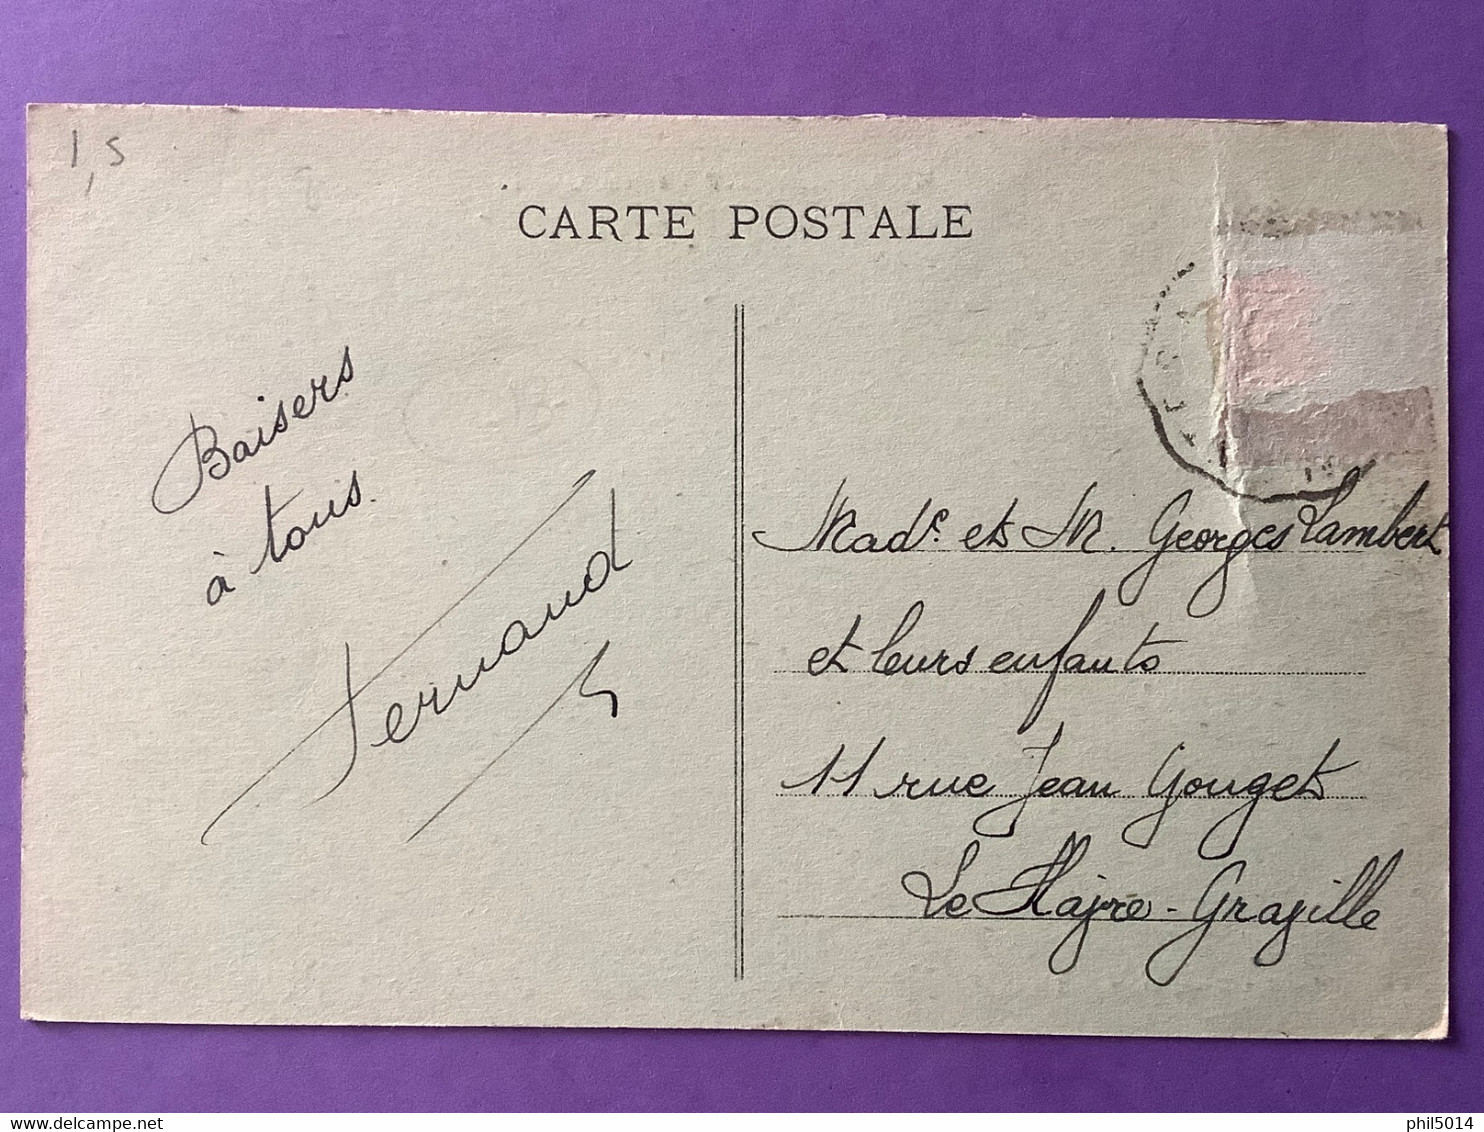 1,5
CARTE POSTALE
Baisers
à tous.
Fernand
Made. et M. Georges Lambert
et leurs enfants
11 rue Jean Gouget
Le Havre - Graville
phil5014